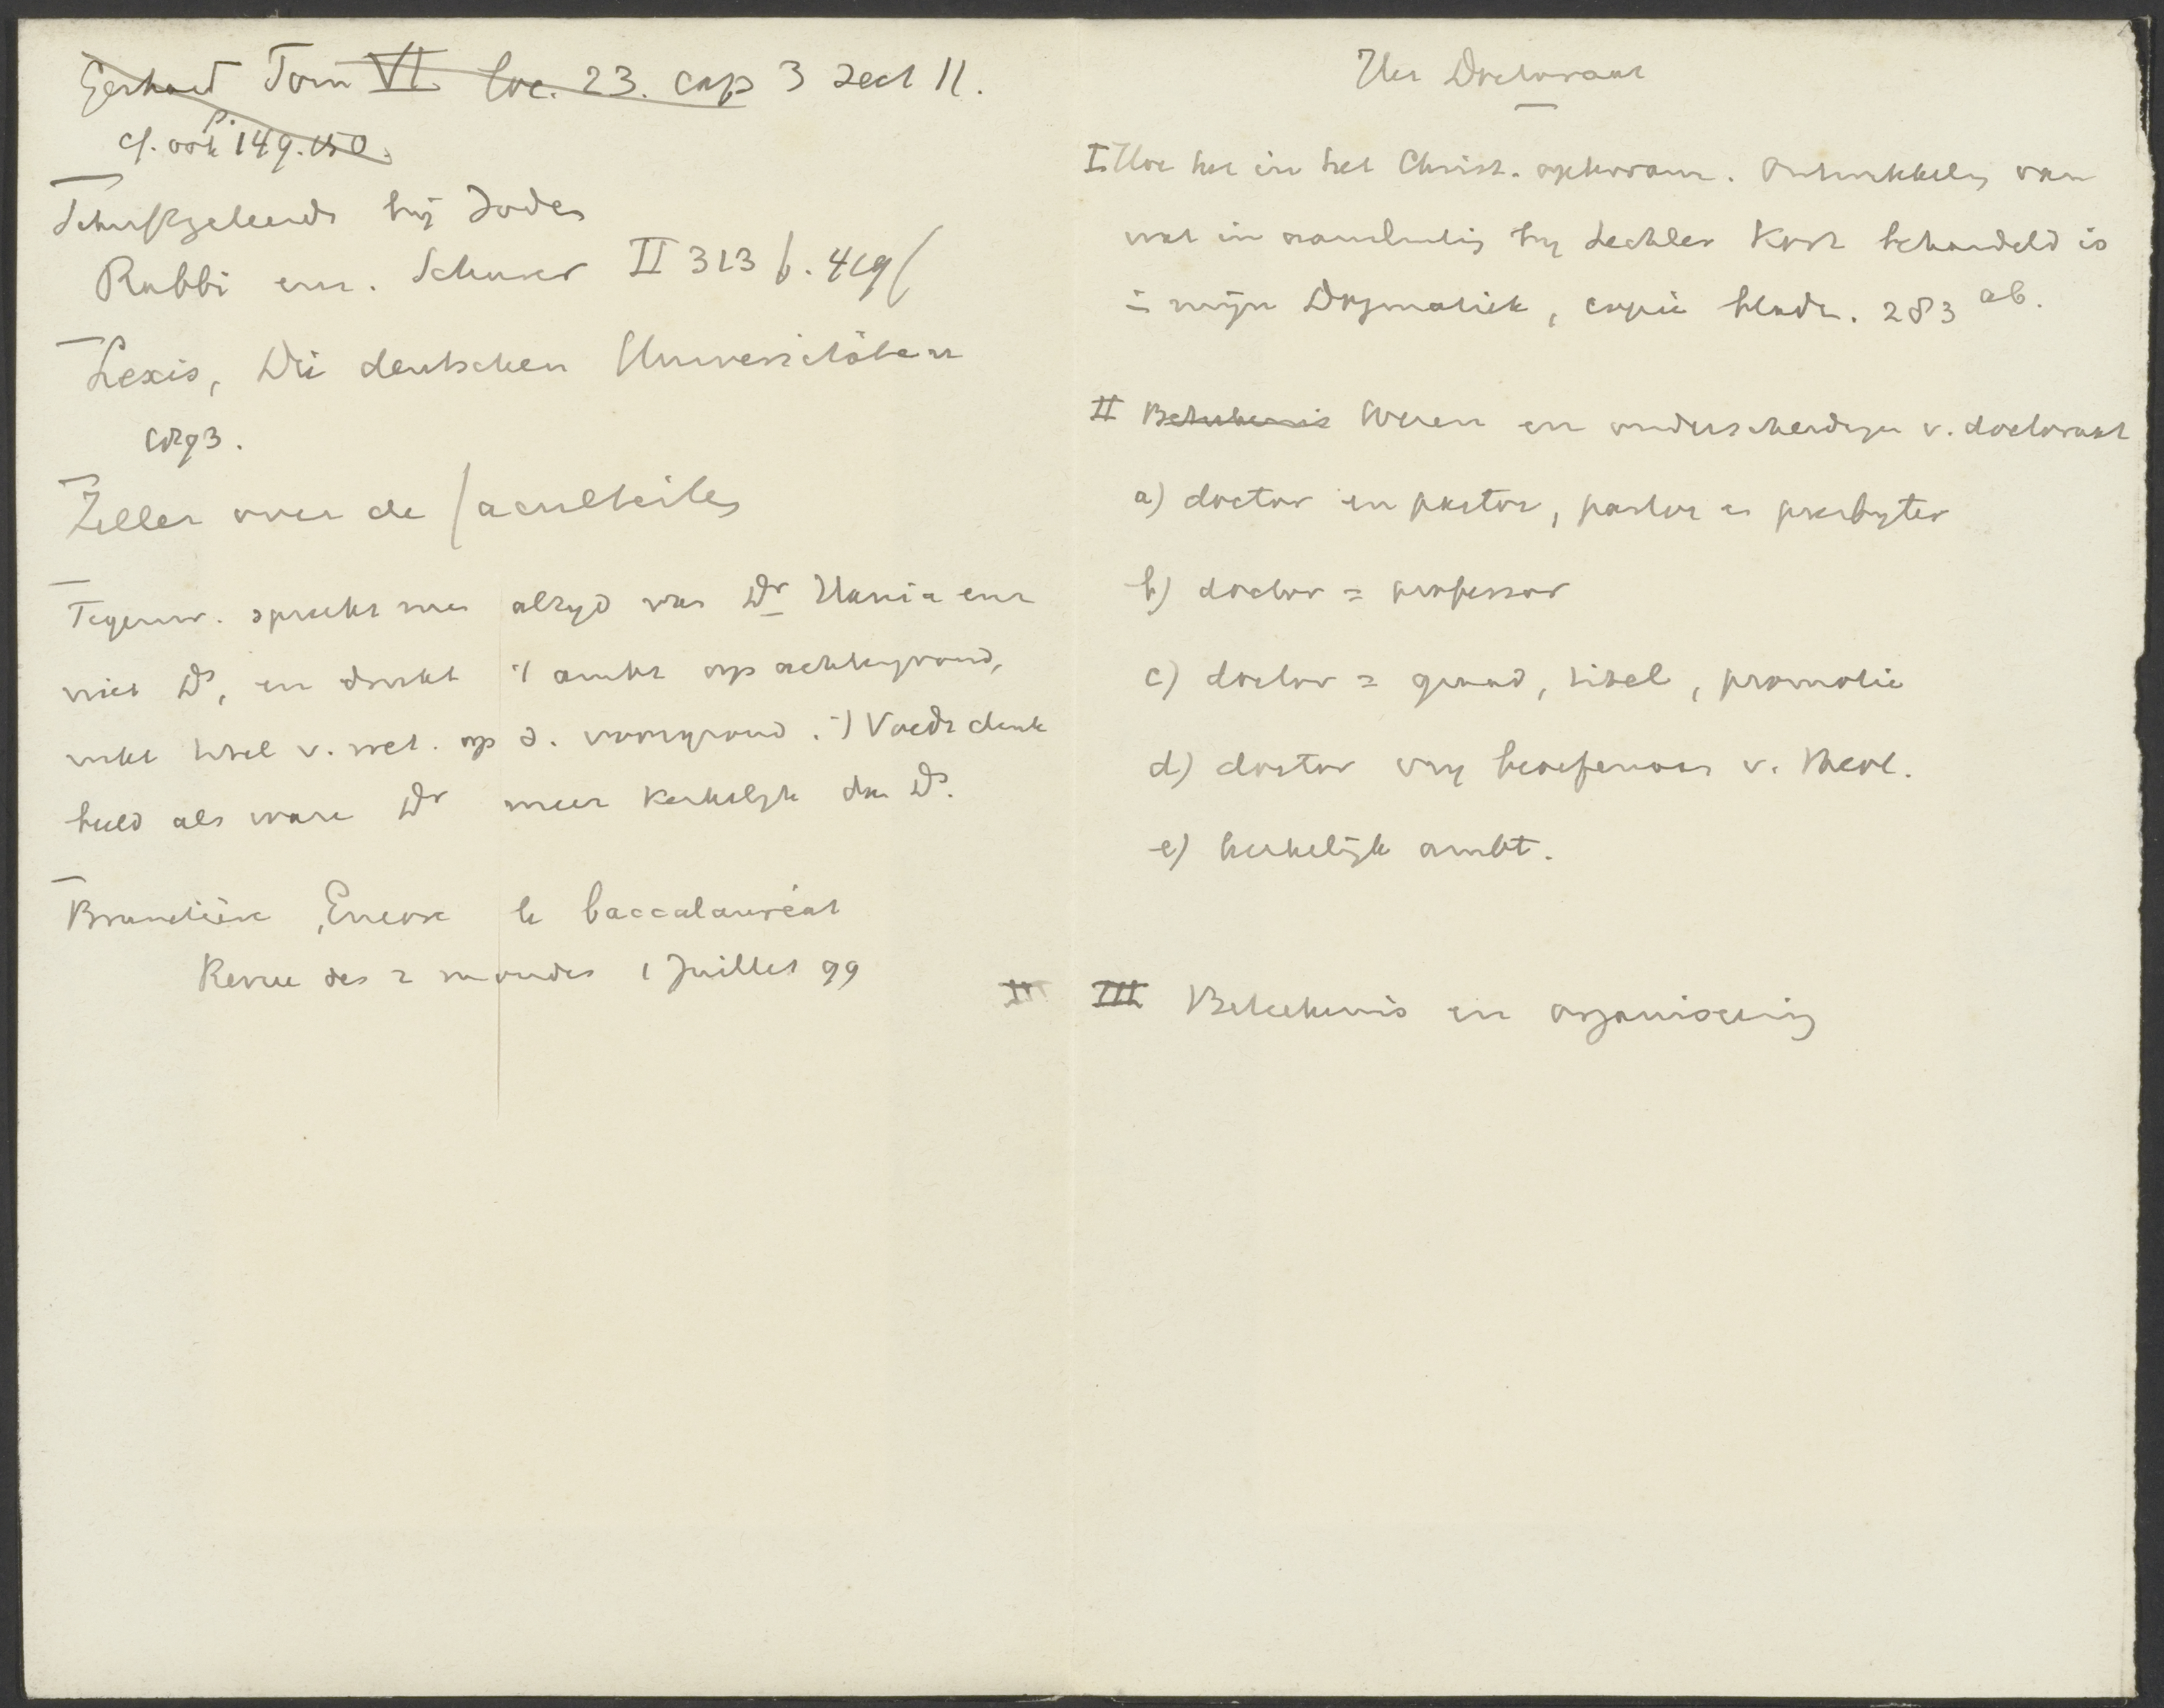 Gerhard Tom VI. loc. 23. cap 3 sect 11.
cf. ook p. 149.150.
Schriftgeleerde bij Joden
Rabbi enz. Schurer II 313 f. 419 f
Lexis, Die deutschen Universitäten
1893.
Zeller over de faculteiten
Tegenw. spreekt men altyd van Dr Hania enz
niet Ds, en drukt 't ambt op achtergrond,
titel v. wet. op d. voorgrond.
als ware Dr meer kerkelyk dan Ds.
Brunetière, Encore le baccalauréat
Revue des 2 mondes 1 Juillet 99
Het Doctoraat
I. Hoe het in het Christ. opkwam. Ontwikkeling van
wat in aansluiting by Lechler kort behandeld is
in mijn Dogmatiek, copie bladz. 283 ab.
II Beteekenis Wezen en onderscheidingen v. doctoraat
a) doctor en pastor, pastor en presbyter
b) doctor = professor
c) doctor = graad, titel, promotie
d) doctor vry beoefenaar v. theol.
e) kerkelijk ambt.
II III Beteekenis en organiseering